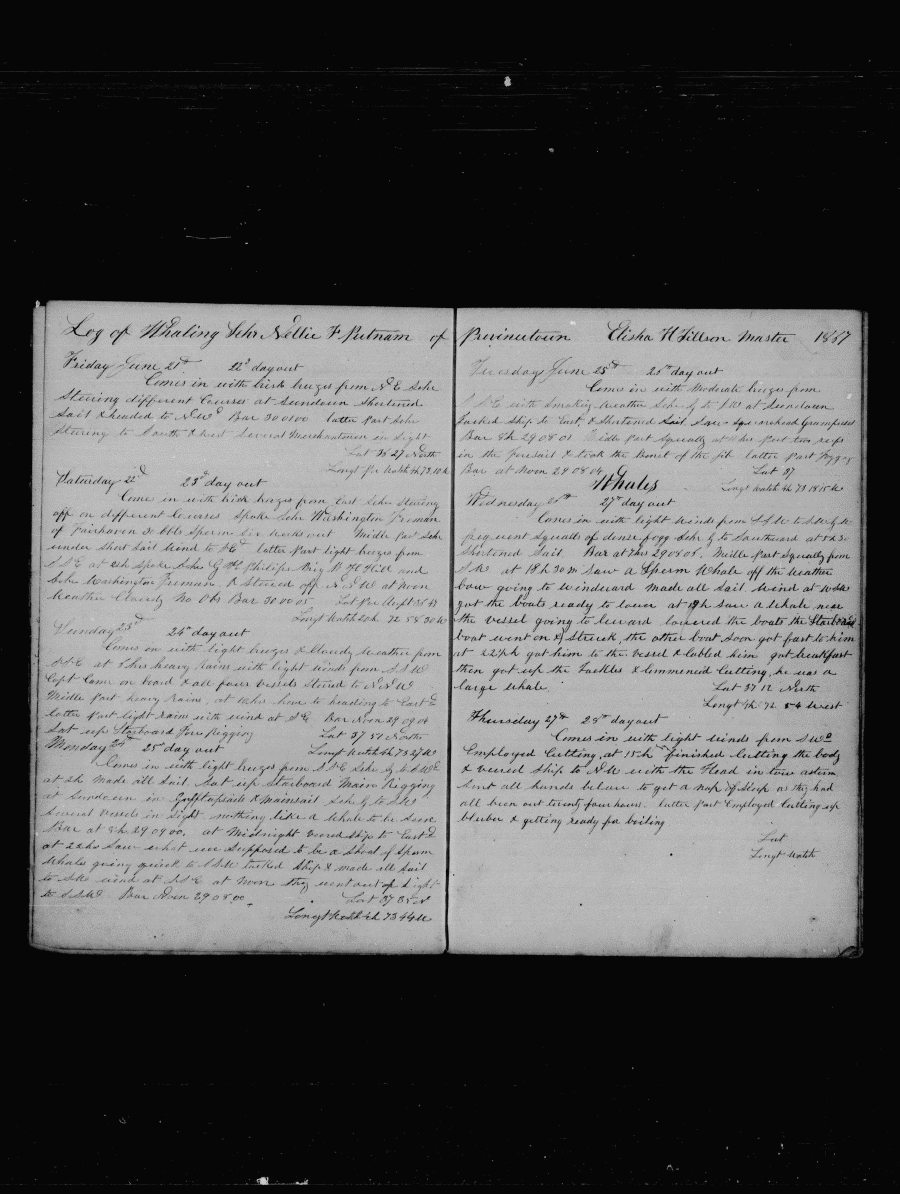 Log of Whaling Schr Nellie F Putnam of
Friday June 21st 22d day out
Comes in with brisk breezes from N E Schr
Steering different Courses at sundown Shortened
Sail & headed to N.Wd Bar 30 01 00 latter Part Schr
Steering to South & West Several Merchantmen in Sight
Lat 36 27 North
Longt Pr Watch 4h 73.10 W
Saturday 22d 23d day out
Come in with brisk breezes from East Schr Steering
off on different Courses Spoke Schr Washington Freeman
of Fairhaven 30 Obls Sperm Six weeks out Middle Part Schr
under Short Sail Wind to SEd latter Part light breezes from
S.S.E at Spoke Schr G H Philips Brig W H Hill and
Schr Washington Freeman & Steered off N.N.W at Noon
Weather Cloudy No Obs Bar 30 00 05 Lat Per
Longt Watch 20h 72 54 30 W
Sunday 23d 24th day out
Comes on with light breezes & Cloudy Weather from
S.S.E at heavy Rains with light winds from S S W
Capt Came on board & all four vessels Steered to N.N.W
Middle Part heavy Rains, at hove to heading to Eastd
latter Part light rain with wind at S E Bar Noon 29 09 04
Sat up Starboard Fore Rigging Lat 37 51 North
Monday 24th 25th day out Longt Watch 4h 73 27 W
Comes in with light breezes from S.S.E Schr by to S.Wd
at made all Sail Sat up Starboard Main Rigging
at Sundown in Gafftopsails & Mainsail Schr by to S.W
Several Vessels in Sight nothing like a Whale to be Seen
Bar at 8h 29 09 00. at Midnight veered Ship to Eastd
at Saw what we Supposed to be a Shoal of Sperm
Whales going quick to S.S.W tacked Ship & made all Sail
to wind at S.S.E at Noon they went out of Sight
to S.S.Wd Bar Noon 29 08 00. Lat 37 35 N
Longt Watch 4h 73 44 W
Provincetown Elisha H Tillson Master 1867
Tuesday June 25th 26th day out
Comes in with Moderate breezes from
S.S.E with Smoky Weather Schr by to S.W at Sundown
Tacked Ship to East & Shortened Sail Saw Squarehead Grampuses
Bar 8h 29 08 01 Middle Part Squally at Put two reefs
in the Foresail & took the Bonet of the jib latter Part Foggy
Bar at Noon 29 08 04 Lat 37
Whales Longt Watch 4h 73 18 15 W
Wednesday 26th 27th day out
Comes in with light winds from S.S.W to S.W by W
frequent Squalls of dense fogg Schr by to Southward at
Shortened Sail Bar at 29 08 05. Middle Part Squally from
S.W at 18h 30m Saw a Sperm Whale off the weather
bow going to windward made all Sail wind at W.S.W
got the boats ready to lower at 19h saw a whale near
the vessel going to leward lowered the boats the Starboard
boat went on & Struck the other boat soon got fast to him
at 22½h got him to the vessel & Cabled him got breakfast
then got up the Tackles & Commened Cutting he was a
large Whale Lat 37 12 North
Longt 4h 72 54 West
Thursday 27th 28th day out
Comes in with light winds from S.Wd
Employed Cutting at 15h finished Cutting the body
& veered Ship to N.W with the Head in tow astern
Sent all hands below to get a nap of Sleep as they had
all been out twenty four hours. latter Part Employed Cutting up
blubber & getting ready for boiling
Lat
Longt Watch